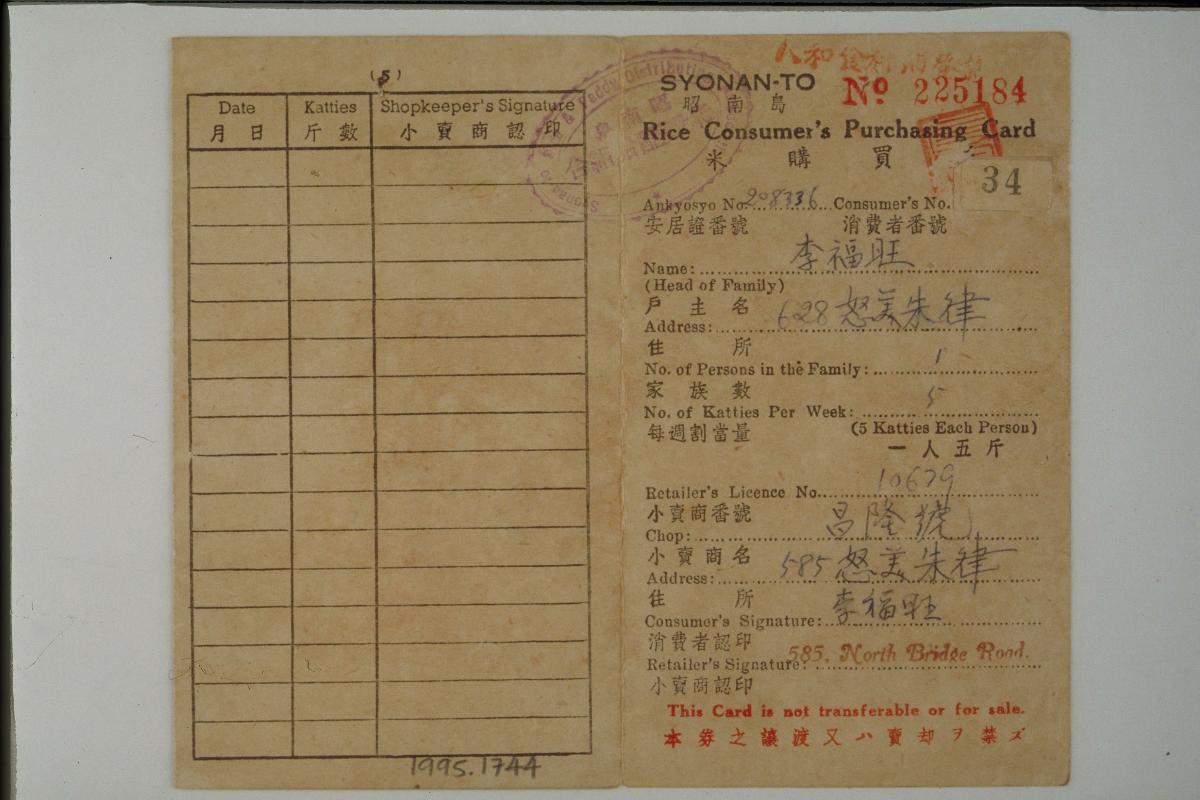 (5)
Date Katties Shopkeeper's Signature
月 日 斤 數 小 賣 商 認 印
1995.1744
SYONAN-TO
昭 南 島
Nº 225184
Rice Consumer's Purchasing Card
米 購 買
34
Ankyosyo No. 208336 Consumer's No.
安居證番號 消費者番號
Name: 李福旺
(Head of Family)
戶 主 名
Address: 628 怒美朱律
住 所
No. of Persons in the Family: 1
家 族 數
No. of Katties Per Week: 5
每週割當量 (5 Katties Each Person)
一 人 五 斤
Retailer's Licence No. 10679
小賣商番號
Chop: 昌隆號
小賣商名
Address: 585 怒美朱律
住 所
Consumer's Signature: 李福旺
消費者認印
Retailer's Signature: 585, North Bridge Road.
小賣商認印
This Card is not transferable or for sale.
本 券 之 讓 渡 又 ハ 賣 却 ヲ 禁 ズ